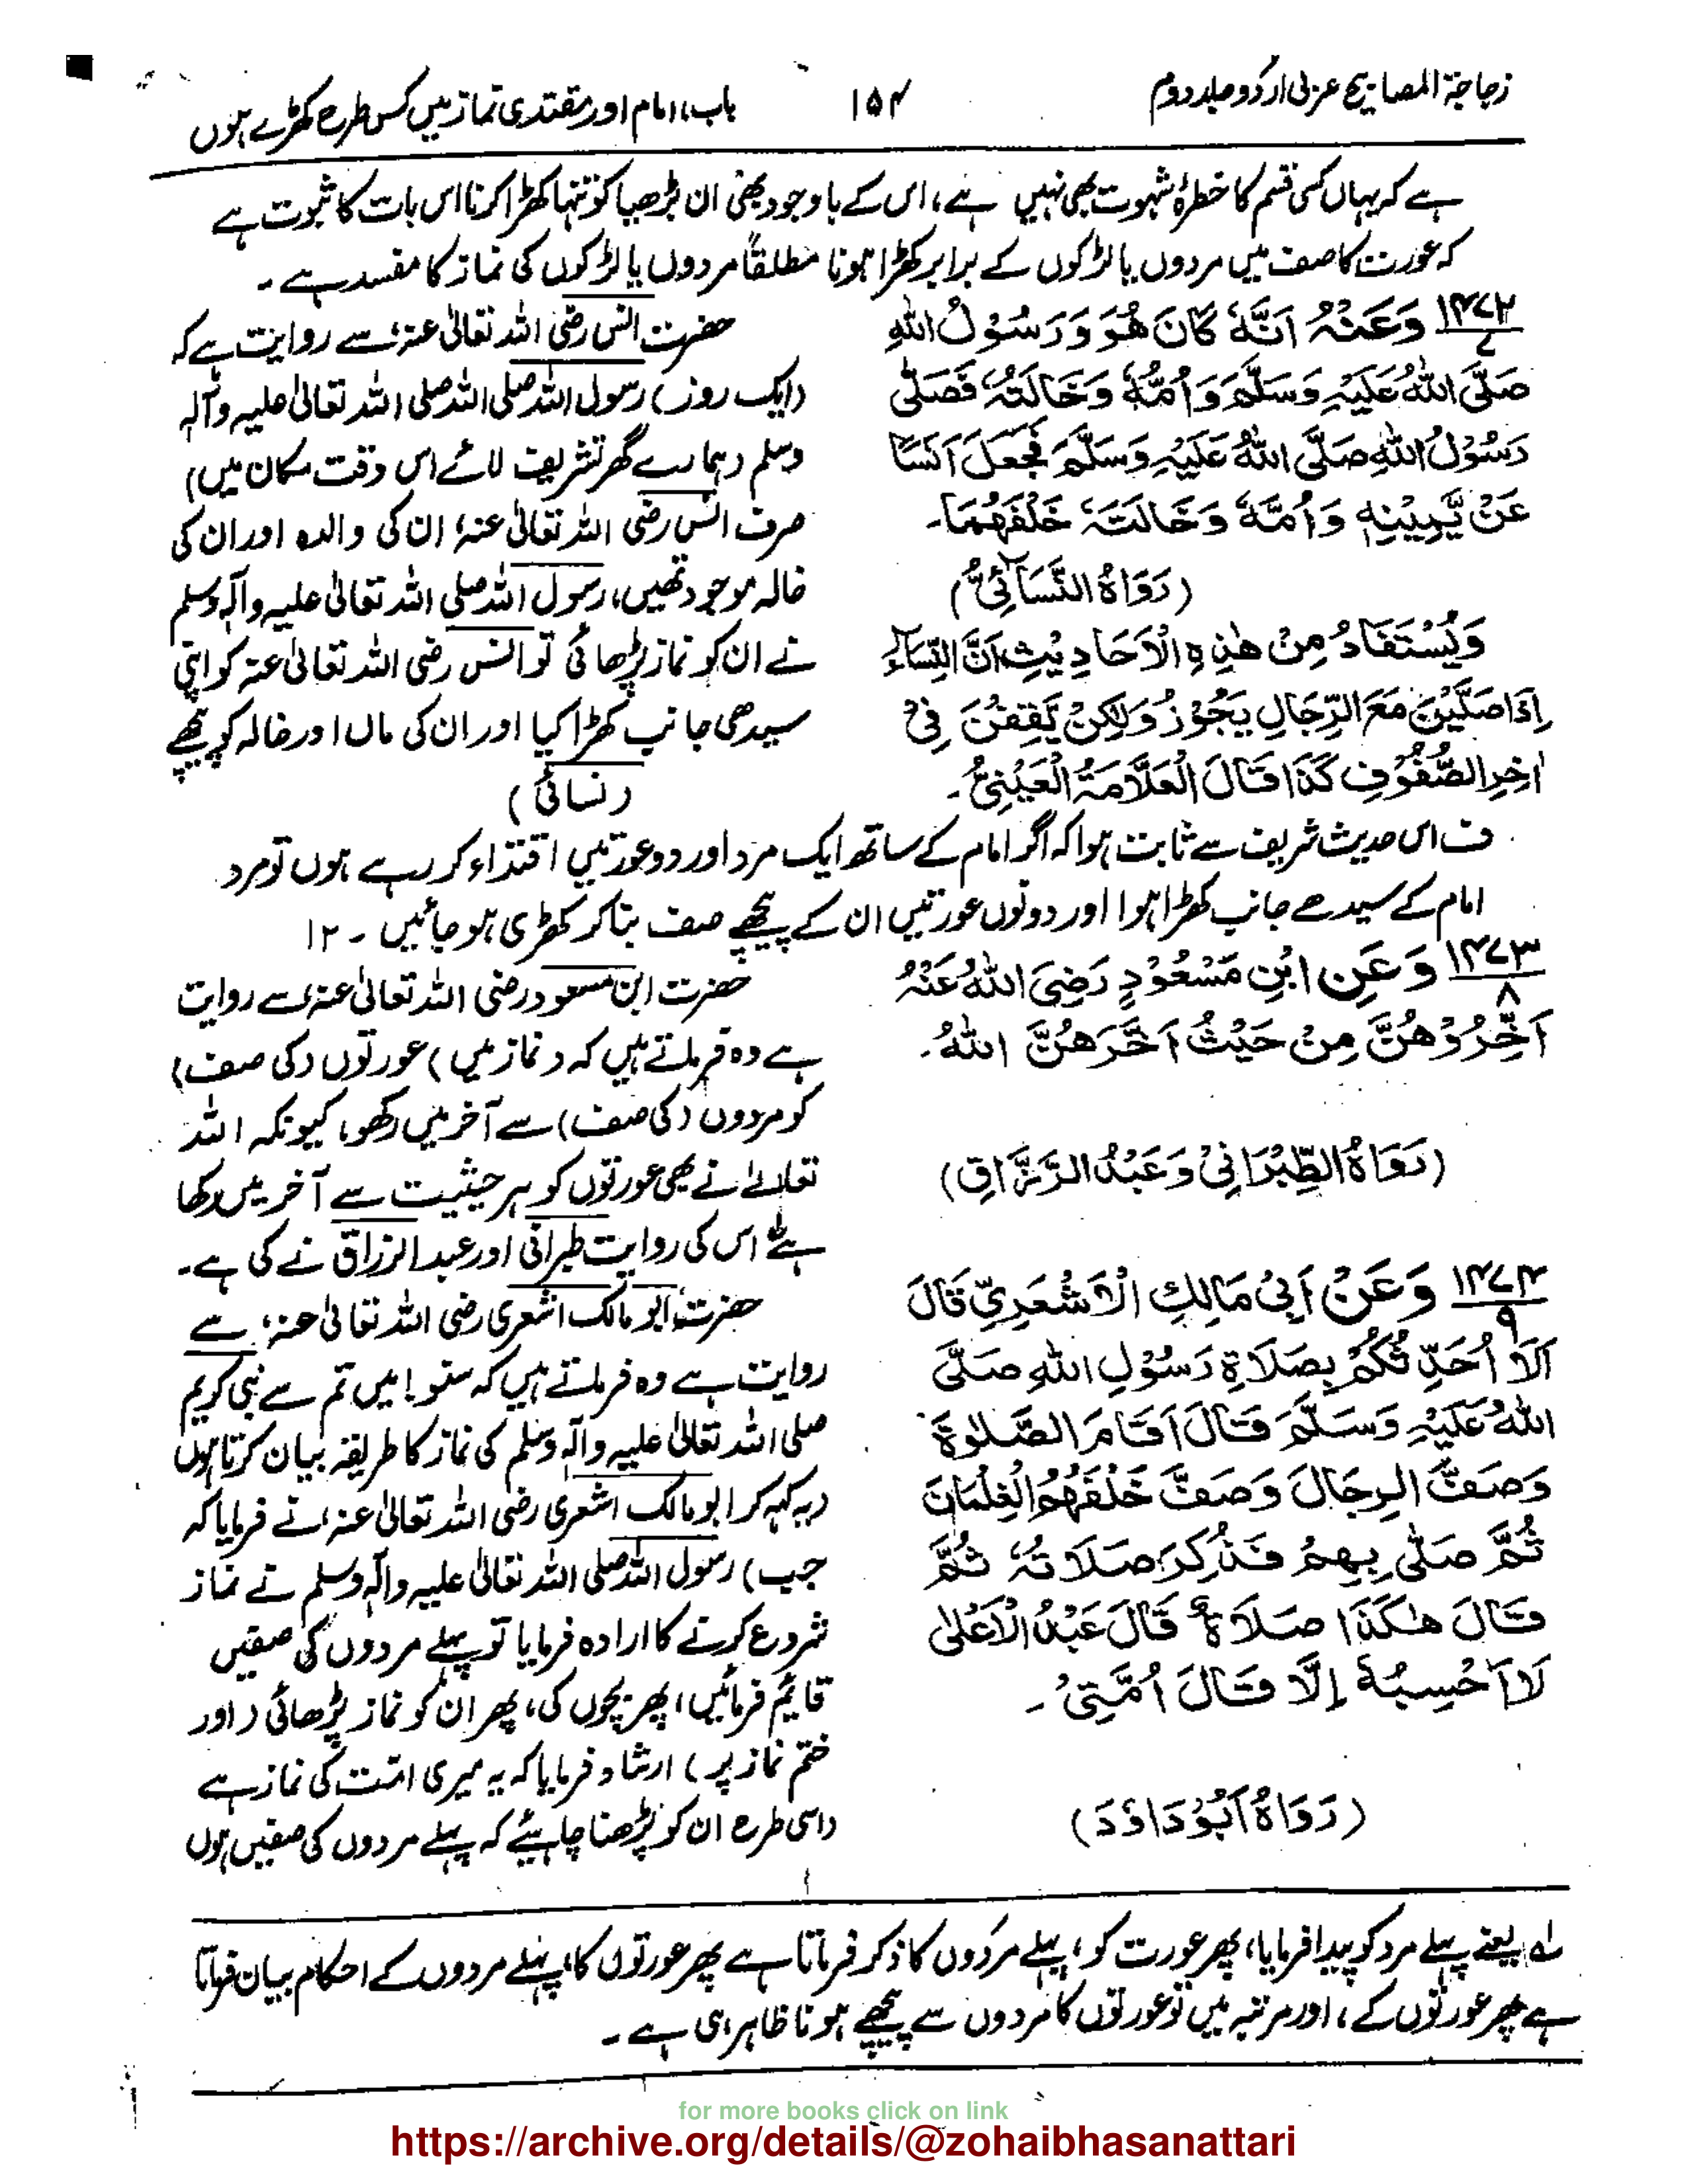 زجاجۃ المصابیح عربی اردو جلد دوم
۱۵۴
باب، امام اور مقتدی نماز میں کس طرح کھڑے ہوں
ہے کہ یہاں کسی قسم کا خطرۂ شہوت بھی نہیں ہے، اس کے باوجود بھی ان بڑھیا کو تنہا کھڑا کرنا اس بات کا ثبوت ہے
کہ عورت کا صف میں مردوں یا لڑکوں کے برابر کھڑا ہونا مطلقاً مردوں یا لڑکوں کی نماز کا مفسد ہے ۔
۱۴۷۲
۷
وَعَنْہُ اَنَّہٗ کَانَ ھُوَ وَرَسُوْلُ اللّٰہِ
صَلَّی اللّٰہُ عَلَیْہِ وَسَلَّمَ وَاُمُّہٗ وَخَالَتُہٗ فَصَلّٰی
رَسُوْلُ اللّٰہِ صَلَّی اللّٰہُ عَلَیْہِ وَسَلَّمَ فَجَعَلَ اَنَسًا
عَنْ یَّمِیْنِہٖ وَاُمَّہٗ وَخَالَتَہٗ خَلْفَھُمَا۔
(رَوَاہُ النَّسَآئِیُّ)
وَیُسْتَفَادُ مِنْ ھٰذِہِ الْاَحَادِیْثِ اَنَّ النِّسَآءَ
اِذَا صَلَّیْنَ مَعَ الرِّجَالِ یَجُوْزُ وَلٰکِنْ یَقِفْنَ فِیْ
اٰخِرِ الصُّفُوْفِ کَذَا قَالَ الْعَلَّامَۃُ الْعَیْنِیُّ۔
حضرت انس رضی اللہ تعالیٰ عنہ، سے روایت ہے کہ
(ایک روز) رسول اللہ صلی اللہ صلی اللہ تعالیٰ علیہ وآلہ
وسلم (ہمارے گھر تشریف لائے اس وقت مکان میں)
صرف انس رضی اللہ تعالیٰ عنہ، ان کی والدہ اور ان کی
خالہ موجود تھیں، رسول اللہ صلی اللہ تعالیٰ علیہ وآلہ وسلم
نے ان کو نماز پڑھائی تو انس رضی اللہ تعالیٰ عنہ کو اپنی
سیدھی جانب کھڑا کیا اور ان کی ماں اور خالہ کو پیچھے
(نسائی)
ف اس حدیث شریف سے ثابت ہوا کہ اگر امام کے ساتھ ایک مرد اور دو عورتیں اقتداء کر رہے ہوں تو مرد
امام کے سیدھے جانب کھڑا ہوا اور دونوں عورتیں ان کے پیچھے صف بنا کر کھڑی ہو جائیں ۔ ۱۲
۱۴۷۳
۸
وَعَنِ ابْنِ مَسْعُوْدٍ رَضِیَ اللّٰہُ عَنْہُ
اَخِّرُوْھُنَّ مِنْ حَیْثُ اَخَّرَھُنَّ اللّٰہُ۔
(رَوَاہُ الطِّبْرَانِیْ وَعَبْدُ الرَّزَّاقِ)
حضرت ابن مسعود رضی اللہ تعالیٰ عنہ، سے روایت
ہے وہ فرماتے ہیں کہ (نماز میں) عورتوں (کی صف)
کو مردوں (کی صف) سے آخر میں رکھو، کیونکہ اللہ
تعالےٰ نے بھی عورتوں کو ہر حیثیت سے آخر میں رکھا
ہے اس کی روایت طبرانی اور عبدالرزاق نے کی ہے۔
۱۴۷۴
۹
وَعَنْ اَبِیْ مَالِکِ الْاَشْعَرِیِّ قَالَ
اَلَا اُحَدِّثُکُمْ بِصَلَاۃِ رَسُوْلِ اللّٰہِ صَلَّی
اللّٰہُ عَلَیْہِ وَسَلَّمَ قَالَ اَقَامَ الصَّلٰوۃَ
وَصَفَّ الرِجَالَ وَصَفَّ خَلْفَھُمُ الْغِلْمَانَ
ثُمَّ صَلّٰی بِھِمْ فَذُکِرَ صَلَاتُہٗ ثُمَّ
قَالَ ھٰکَذَا صَلَاۃُ قَالَ عَبْدُ الْاَعْلٰی
لَا اَحْسِبُہٗ اِلَّا قَالَ اُمَّتِیْ۔
(رَوَاہُ اَبُوْدَاوٗدَ)
حضرت ابو مالک اشعری رضی اللہ تعالیٰ عنہ، سے
روایت ہے وہ فرماتے ہیں کہ سنو! میں تم سے نبی کریم
صلی اللہ تعالیٰ علیہ وآلہ وسلم کی نماز کا طریقہ بیان کرتا ہوں
(یہ کہہ کر ابو مالک اشعری رضی اللہ تعالیٰ عنہ، نے فرمایا کہ
جب) رسول اللہ صلی اللہ تعالیٰ علیہ وآلہ وسلم نے نماز
شروع کرنے کا ارادہ فرمایا تو پہلے مردوں کی صفیں
قائم فرمائیں، پھر بچوں کی، پھر ان کو نماز پڑھائی (اور
ختم نماز پر) ارشاد فرمایا کہ یہ میری امّت کی نماز ہے
(اسی طرح ان کو پڑھنا چاہیئے کہ پہلے مردوں کی صفیں ہوں
لہ یعنے پہلے مرد کو پیدا فرمایا، پھر عورت کو، پہلے مردوں کا ذکر فرماتا ہے پھر عورتوں کا، پہلے مردوں کے احکام بیان فرماتا
ہے پھر عورتوں کے، اور مرتبہ میں تو عورتوں کا مردوں سے پیچھے ہونا ظاہر ہی ہے ۔
for more books click on link
https://archive.org/details/@zohaibhasanattari